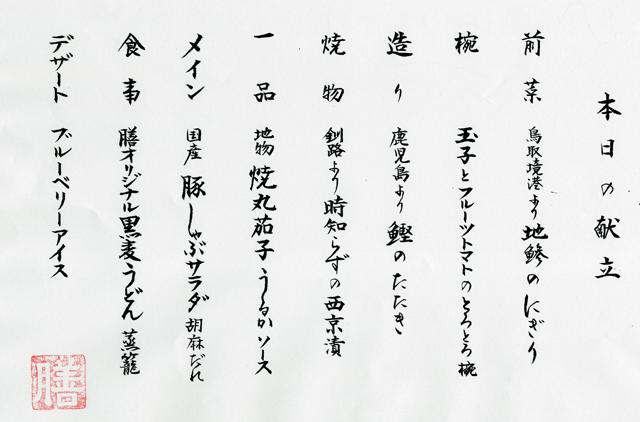 本日の献立
前菜 鳥取境港より地鯵のにぎり
椀 玉子とフルーツトマトのとろとろ椀
造り 鹿児島より鰹のたたき
焼物 釧路より時知らずの西京漬
一品 地物焼丸茄子うるかソース
メイン 国産豚しゃぶサラダ胡麻だれ
食事 膳オリジナル黒麦うどん蒸籠
デザート ブルーベリーアイス
膳